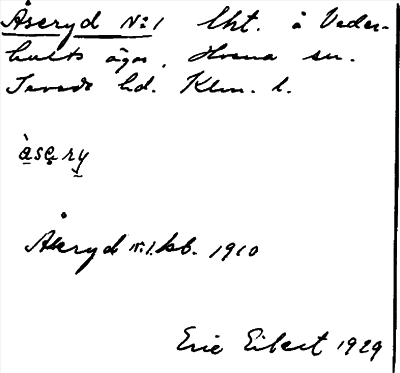 Åseryd No: 1 lht. å Veder-
hults ägor, Hvena sn.
Sevede hd. Klm. l.
àsery
Åkeryd N:1. kb. 1910
Eric Eibert 1929